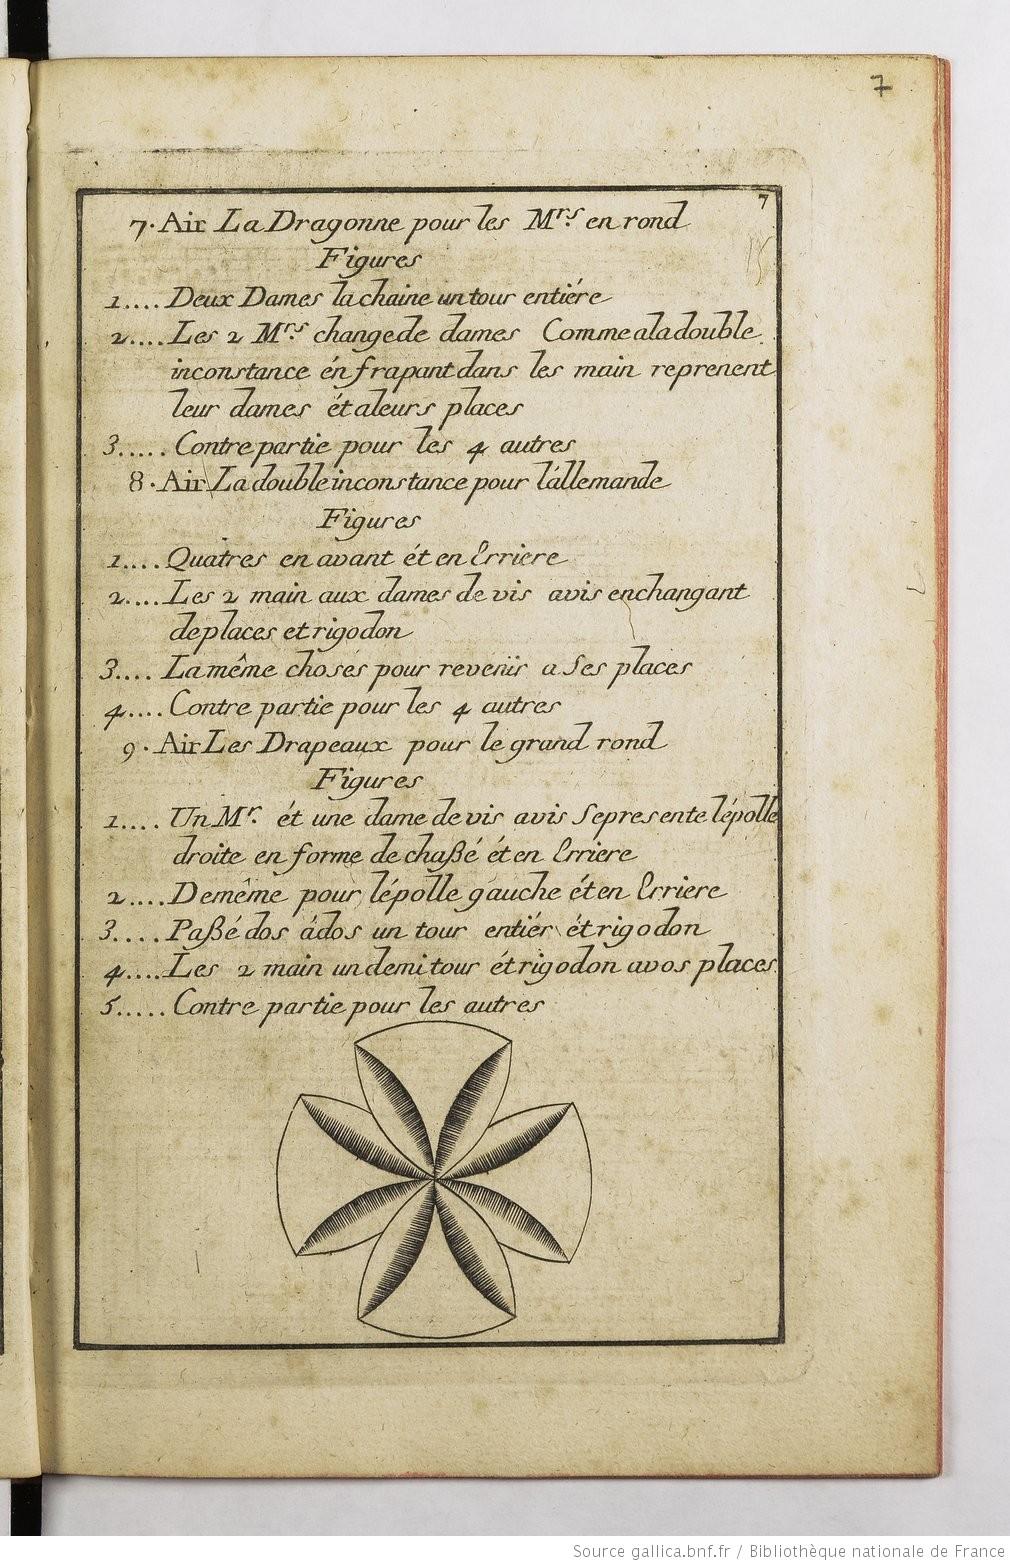 7
7
7. Air La Dragonne pour les Mrs. en rond
Figures
1.... Deux Dames la chaine un tour entiére
2.... Les 2 Mrs. change de dames Comme a la double
inconstance én frapant dans les main reprenent
leur dames ét a leurs places
3..... Contre partie pour les 4 autres
8. Air La double inconstance pour l'állemande
Figures
1.... Quatres en avant ét en Erriere
2.... Les 2 main aux dames de vis avis en changant
de places et rigodon
3.... La même choses pour revenir a Ses places
4.... Contre partie pour les 4 autres
9. Air Les Drapeaux pour le grand rond
Figures
1.... Un Mr. ét une dame de vis avis Se presente lépolle
droite en forme de chaßé ét en Erriere
2.... De même pour lépolle gauche ét en Erriere
3.... Paßé dos ádos un tour entiér ét rigodon
4.... Les 2 main un demi tour ét rigodon a vos places
5..... Contre partie pour les autres
Source gallica.bnf.fr / Bibliothèque nationale de France